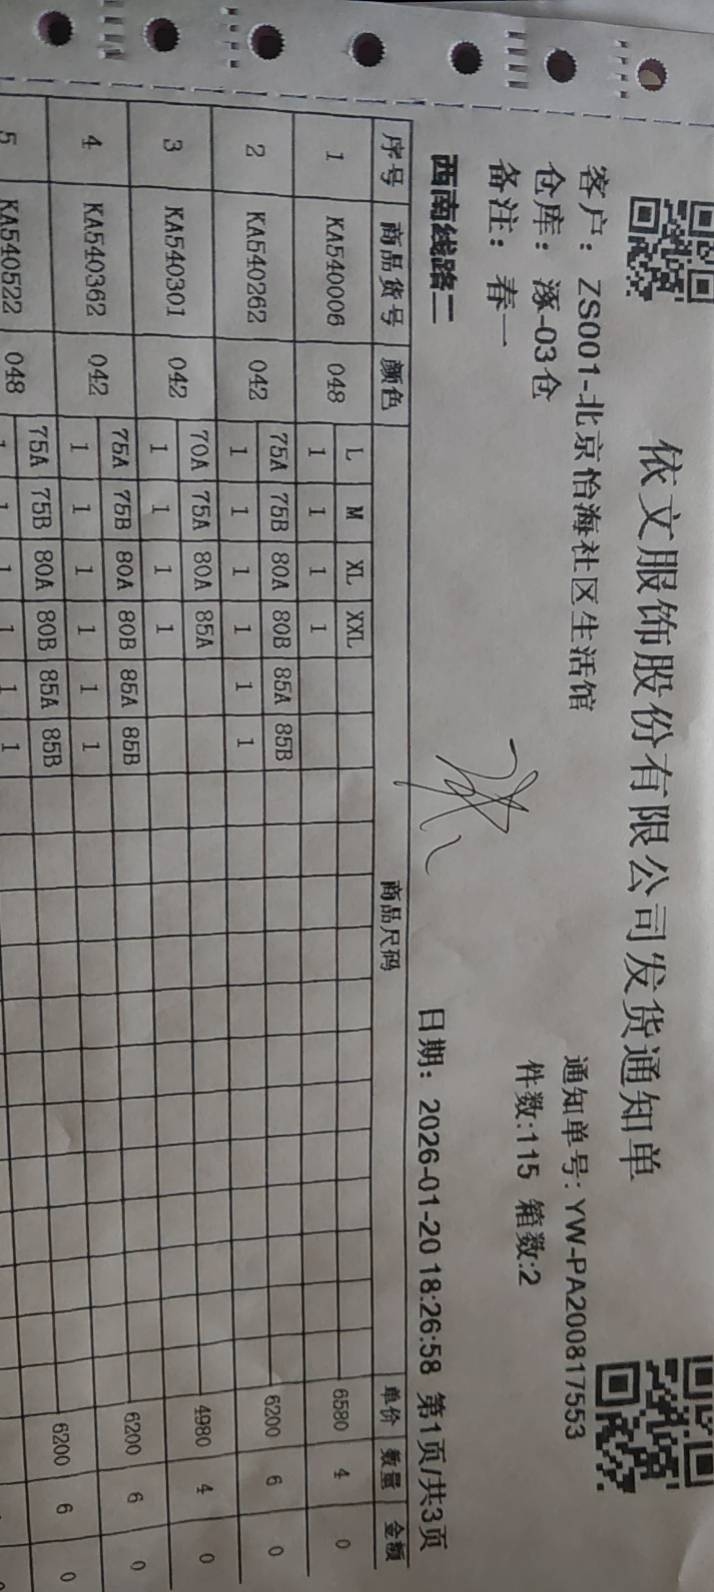 依文服饰股份有限公司发货通知单
客户： ZS001-北京怡海社区生活馆 通知单号: YW-PA200817553
仓库： 涿-03仓 件数:115 箱数:2
备注： 春一
西南线路二 日期： 2026-01-20 18:26:58 第1页/共3页
序号 商品货号 颜色 商品尺码 单价 数量 金额
L M XL XXL
1 KA540006 048 1 1 1 1 6580 4 0
75A 75B 80A 80B 85A 85B
2 KA540262 042 1 1 1 1 1 1 6200 6 0
70A 75A 80A 85A
3 KA540301 042 1 1 1 1 4980 4 0
75A 75B 80A 80B 85A 85B
4 KA540362 042 1 1 1 1 1 1 6200 6 0
75A 75B 80A 80B 85A 85B
5 KA540522 048 1 1 1 1 1 1 6200 6 0